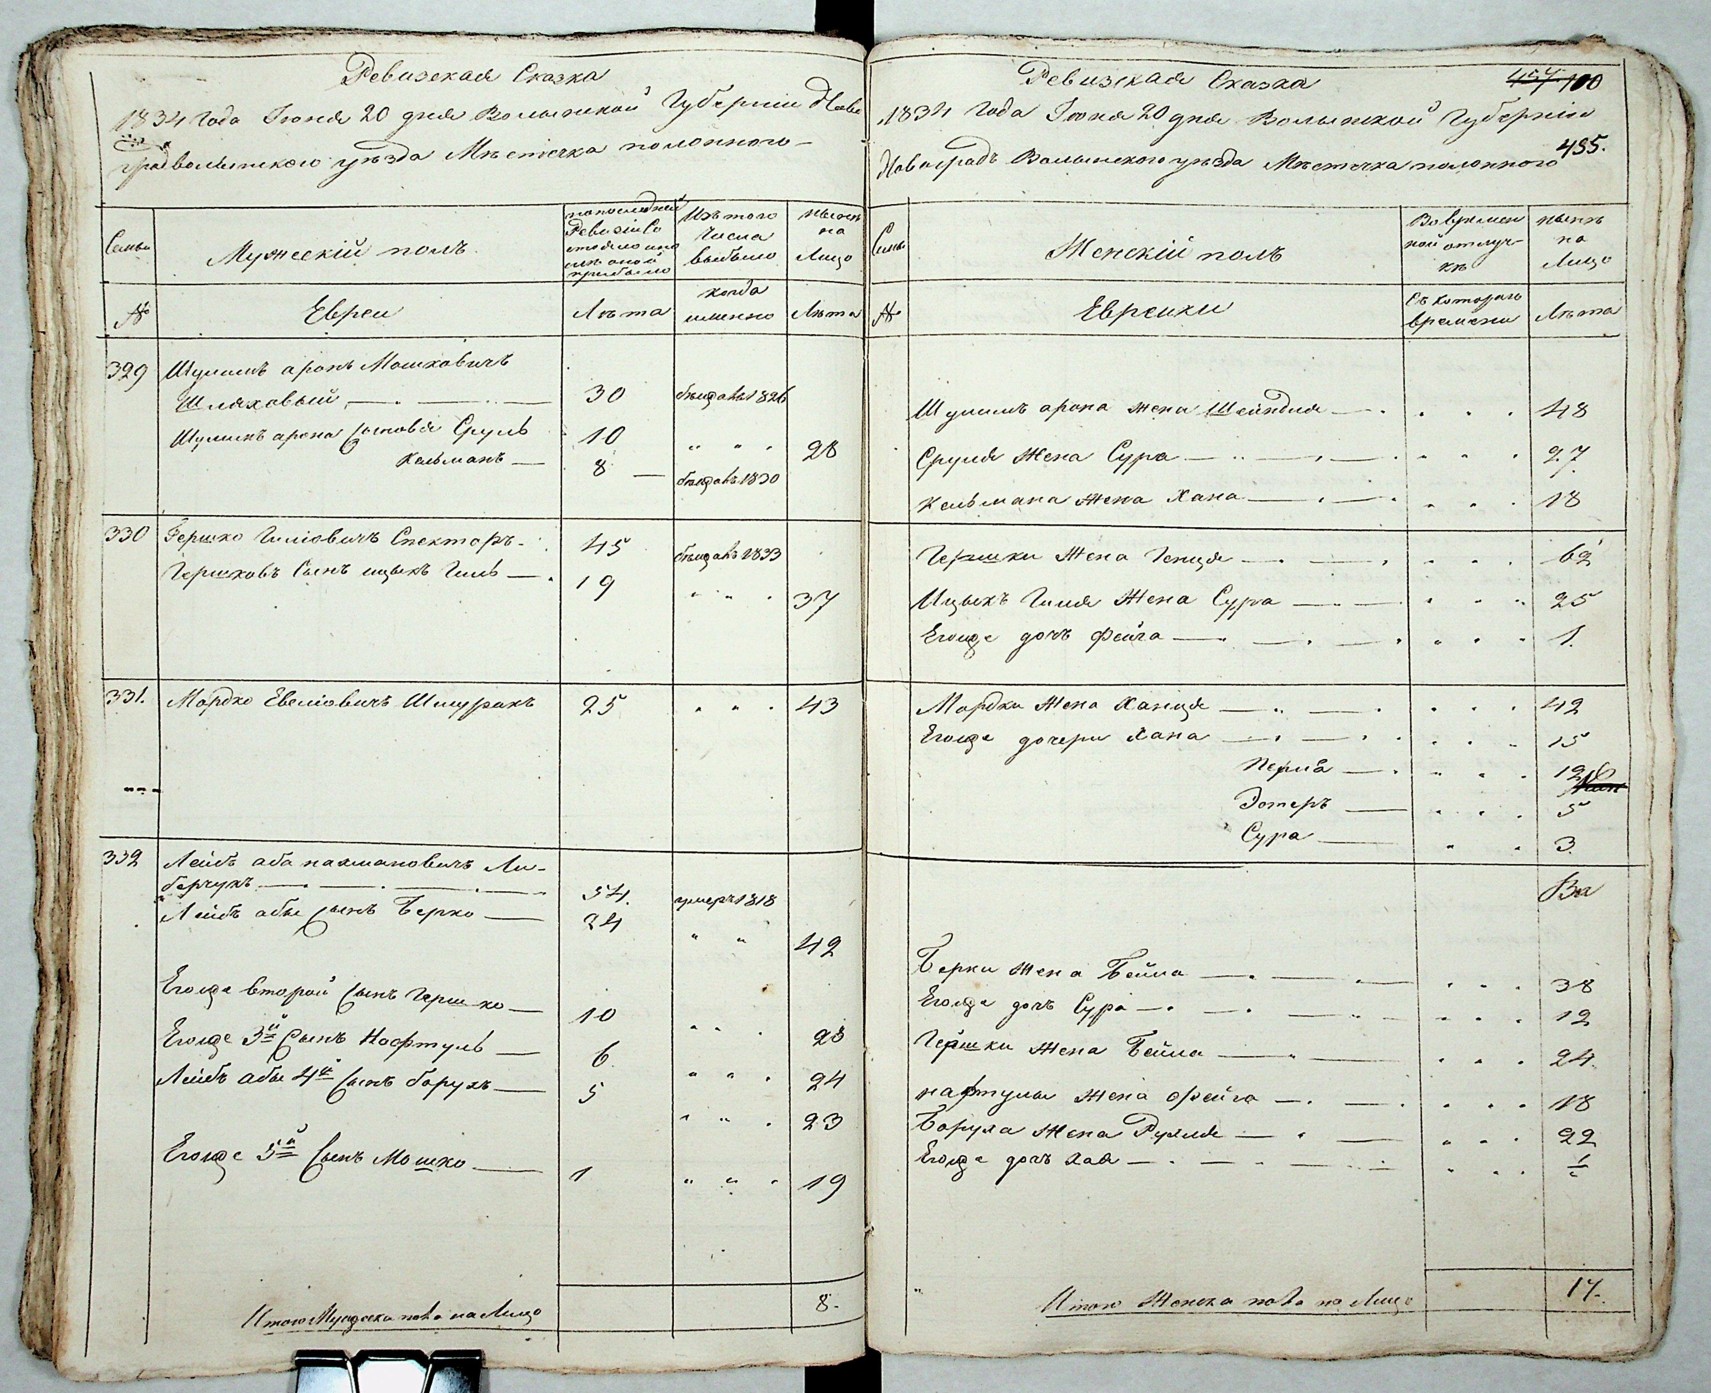 Ревизская Сказка
1834 Года Іюня 20 дня Волынской Губерніи Ново
градволынского уѣзда Мѣстечка полонного
Семьи
Мужескій полъ
по последней Ревизіи Состояло или послѣ оной прибыло
Изъ того Числа выбыло
нынѣ на Лицо
№
Евреи
Лѣта
когда именно
Лѣта
329 Шулимъ аронъ Мошковичъ
Шляховый 30 1826
Шулимъ арона Сыновья Сруль 10 28
Кельманъ 8 1830
330 Гершко Иліовичъ Спекторъ 45 1833
Гершковъ Сынъ ицыкъ Гиль 19 37
331. Мордко Евеліовичъ Шмуракъ 25 43
332 Лейбъ аба нахмановичъ Ли-
берчукъ 54. умеръ 1818
Лейбъ абы Сынъ Берко 24 42
Егожде второй Сынъ Гершко 10 28
Егожде 3й Сынъ Нафтуль 6 24
Лейбъ абы 4й Сынъ борухъ 5 23
Егожде 5й Сынъ Мошко 1 19
Итого Мужеска пола на Лицо 8.
Ревизская Сказка
100
1834 Года Іюня 20 дня Волынской Губерніи
435.
Новоградъ Волынского уѣзда Мѣстечка полонного
Семьи
Женскій полъ
Во временной отлучкѣ
нынѣ на Лицо
№
Еврейки
Съ которого времени
Лѣта
Шулимъ арона жена Шейндля 48
Сруля Жена Сура 27
Кельмана Жена Хана 18
Гершки Жена Генця 62
Ицыкъ Гиля Жена Сура 25
Егожде дочь Фейга 1.
Мордки Жена Ханця 42
Егожде дочери Хана 15
Перля 12
Эстеръ 5
Сура 3.
Берки Жена Бейла 38
Егожде дочь Сура 12
Гершки Жена Бейла 24
нафтулы Жена Фейга 18
Боруха Жена Рухля 22
Егожде дочь Хая
Итого Женска пола на Лицо 17.